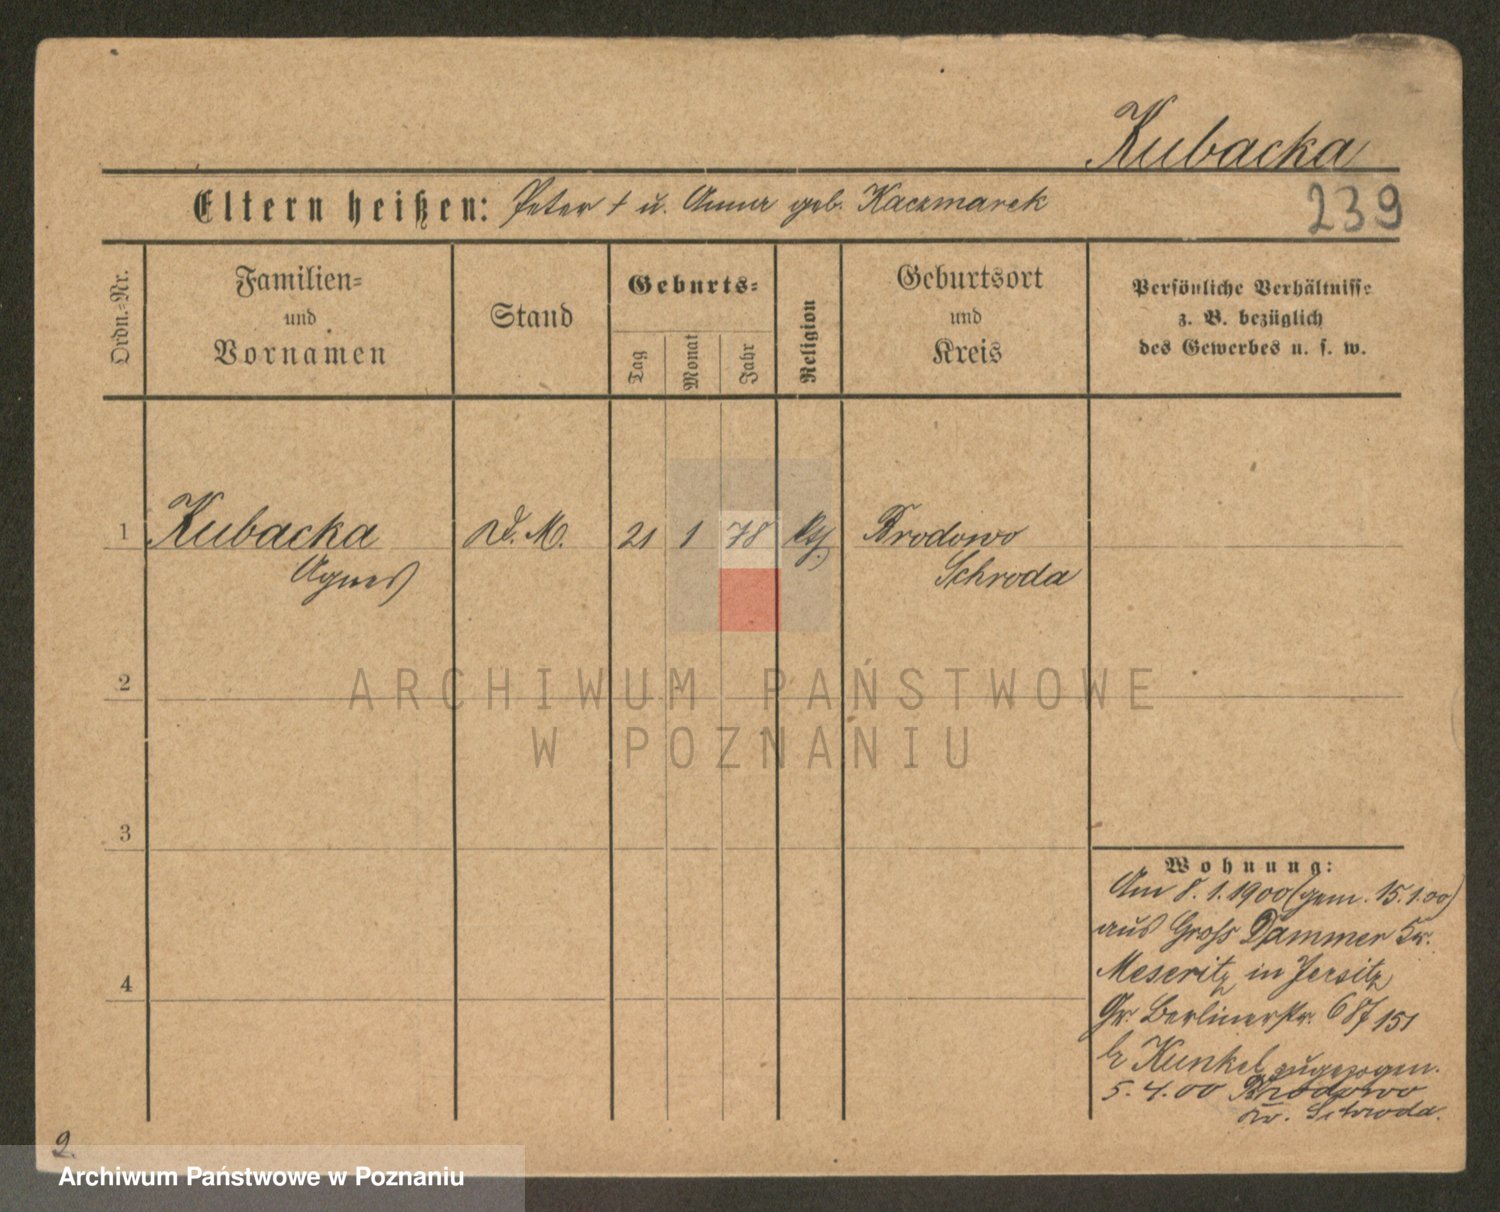 Kubacka
Eltern heißen: Peter † u. Anna geb. Kaczmarek
239
Ordn.-Nr.
Familien-
und
Vornamen
Stand
Geburts-
Tag
Monat
Jahr
Religion
Geburtsort
und
Kreis
Persönliche Verhältnisse
z. B. bezüglich
des Gewerbes u. s. w.
1 Kubacka D. M. 21 1 78 Kth. Brodowo
Agnes Schroda
2
ARCHIWUM PAŃSTWOWE
W POZNANIU
3
Wohnung:
Am 8.1.1900 (gem. 15.1.00)
aus Gross Dammer Kr.
Meseritz in Jersitz
Gr. Berlinerstr. 151
b Kunkel zugezogen.
5.4.00 Brodowo
Kr. Schroda.
4
2.
Archiwum Państwowe w Poznaniu